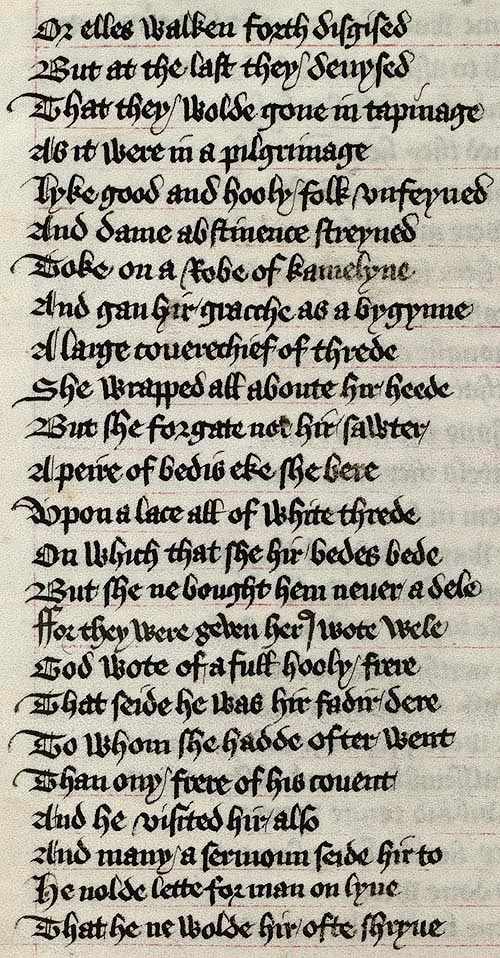 Or elles walken forth disgised
But at the last they devysed
That they wolde gone in tapinage
As it were in a pilgrimage
lyke good and hooly folk vnfeyned
And dame abstinence streyned
Toke on a Robe of kamelyne
And gan hir gracche as a bygynne
A large couerechief of threde
She wrapped all aboute hir heede
But she forgate not hir sawter
A peire of bedis eke she bere
Vpon a lace all of white threde
On which that she hir bedes bede
But she ne bought hem neuer a dele
ffor they were geven her I wote wele
God wote of a full hooly frere
That seide he was hir fadir dere
To whom she hadde ofter went
Than ony frere of his couent
And he visited hir also
And many a sermoun seide hir to
He nolde lette for man on lyue
That he ne wolde hir ofte shryue